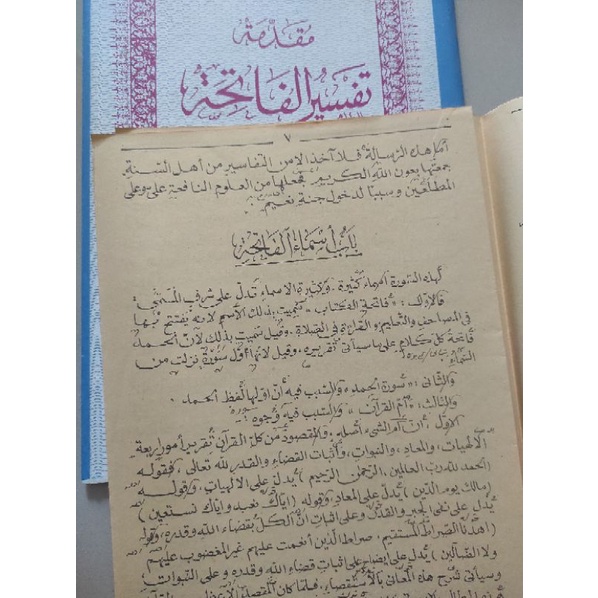 مقدمة
تفسير الفاتحة
٧
أما هذه الرسالة فلا آخذ إلا من التفاسير من أهل السنة
جمعتها بعون الله الكريم فجعلها من العلوم النافعة علي وعلى
المطالعين وسببا لدخول جنة نعيم
باب أسماء الفاتحة
لهذه السورة أسماء كثيرة وكثرة الاسماء تدل على شرف المسمى
فالاول: فاتحة الكتاب سميت بذلك الاسم لانه يفتتح بها
في المصاحف والتعليم والقراءة في الصلاة وقيل سميت بذلك لأن الحمد
فاتحة كل كلام على ما سيأتي تقريره وقيل لانها أول سورة نزلت من
السماء
والثانى: سورة الحمد والسبب فيه أن اولها لفظ الحمد
والثالث: أم القرآن والسبب فيه وجوه
الاول أن أم الشيء أصله والمقصود من كل القرآن تقرير أمور اربعة
الالهيات والمعاد والنبوات واثبات القضاء والقدر لله تعالى فقوله
الحمد لله رب العلمين الرحمن الرحيم يدل على الالهيات وقوله
(مالك يوم الدين) يدل على المعاد وقوله (اياك نعبد واياك نستعين)
يدل على نفي الجبر والقدر وعلى اثبات أن الكل بقضاء الله وقدره وقوله
(اهدنا الصراط المستقيم صراط الذين أنعمت عليهم غير المغضوب عليهم
ولا الضالين) يدل على ايضا على اثبات قضاء الله وقدره وعلى النبوات
وسيأتي شرح هذه المعاني بالاستقصاء فلما كان المقصد